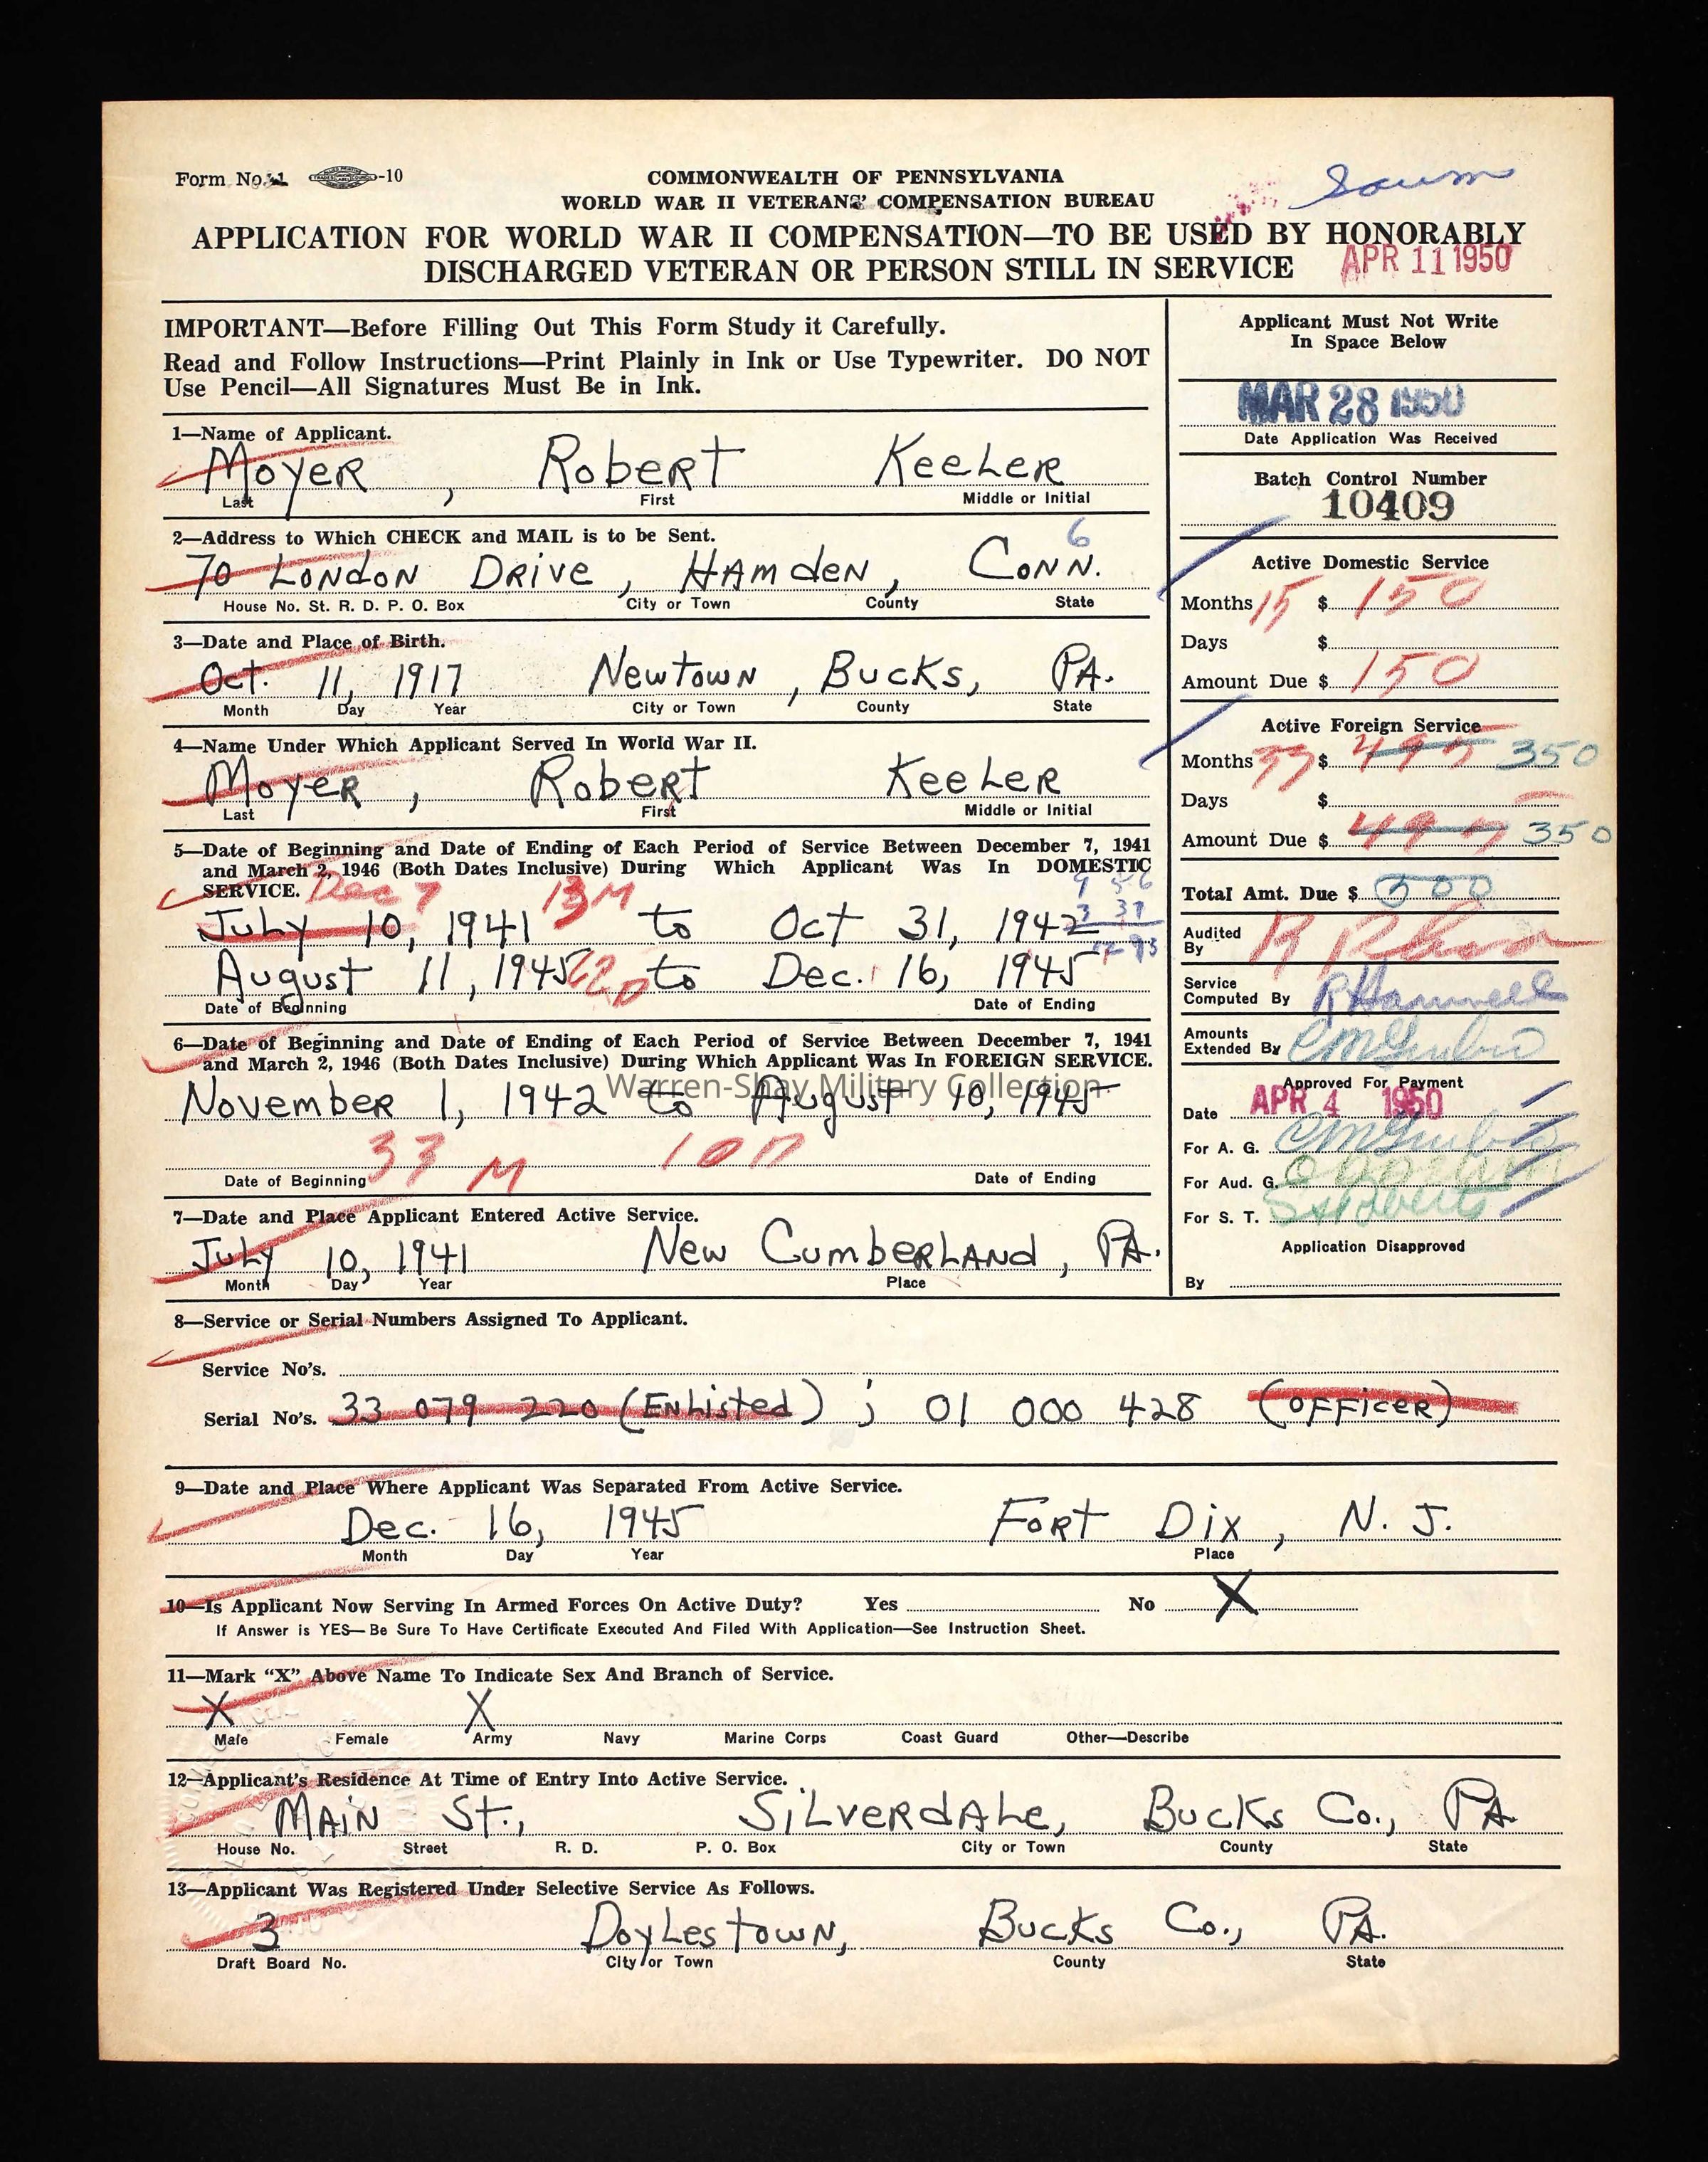 Form No. 1 -10
COMMONWEALTH OF PENNSYLVANIA
WORLD WAR II VETERANS' COMPENSATION BUREAU
APPLICATION FOR WORLD WAR II COMPENSATION—TO BE USED BY HONORABLY
DISCHARGED VETERAN OR PERSON STILL IN SERVICE
APR 11 1950
IMPORTANT—Before Filling Out This Form Study it Carefully.
Read and Follow Instructions—Print Plainly in Ink or Use Typewriter. DO NOT
Use Pencil—All Signatures Must Be in Ink.
1—Name of Applicant.
Moyer, Robert Keeler
Last First Middle or Initial
2—Address to Which CHECK and MAIL is to be Sent.
6
70 London Drive, Hamden, Conn.
House No. St. R. D. P. O. Box City or Town County State
3—Date and Place of Birth.
Oct. 11, 1917 Newtown, Bucks, PA.
Month Day Year City or Town County State
4—Name Under Which Applicant Served In World War II.
Moyer, Robert Keeler
Last First Middle or Initial
5—Date of Beginning and Date of Ending of Each Period of Service Between December 7, 1941
and March 2, 1946 (Both Dates Inclusive) During Which Applicant Was In DOMESTIC
SERVICE. Dec 7 13 M
July 10, 1941 to Oct 31, 1942
August 11, 1945 to Dec. 16, 1945
Date of Beginning Date of Ending
6—Date of Beginning and Date of Ending of Each Period of Service Between December 7, 1941
and March 2, 1946 (Both Dates Inclusive) During Which Applicant Was In FOREIGN SERVICE.
Warren-Shay Military Collection
November 1, 1942 to August 10, 1945
33 M 10 D
Date of Beginning Date of Ending
7—Date and Place Applicant Entered Active Service.
July 10, 1941 New Cumberland, PA.
Month Day Year Place
Applicant Must Not Write
In Space Below
MAR 28 1950
Date Application Was Received
Batch Control Number
10409
Active Domestic Service
Months 15 $ 150
Days $
Amount Due $ 150
Active Foreign Service
Months 33 $ 495 350
Days $
Amount Due $ 495 350
Total Amt. Due $ 500
Audited
By
Service
Computed By
Amounts
Extended By
Approved For Payment
Date APR 4 1950
For A. G.
For Aud. G.
For S. T.
Application Disapproved
By
8—Service or Serial Numbers Assigned To Applicant.
Service No's.
Serial No's. 33 079 220 (Enlisted); 01 000 428 (Officer)
9—Date and Place Where Applicant Was Separated From Active Service.
Dec. 16, 1945 Fort Dix, N. J.
Month Day Year Place
10—Is Applicant Now Serving In Armed Forces On Active Duty? Yes No X
If Answer is YES—Be Sure To Have Certificate Executed And Filed With Application—See Instruction Sheet.
11—Mark "X" Above Name To Indicate Sex And Branch of Service.
X X
Male Female Army Navy Marine Corps Coast Guard Other—Describe
12—Applicant's Residence At Time of Entry Into Active Service.
Main St., Silverdale, Bucks Co., PA.
House No. Street R. D. P. O. Box City or Town County State
13—Applicant Was Registered Under Selective Service As Follows.
3 Doylestown, Bucks Co., PA.
Draft Board No. City or Town County State